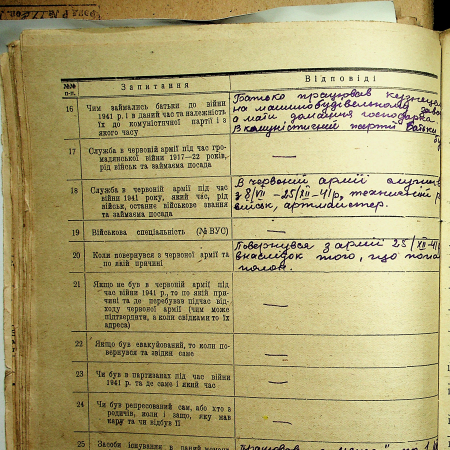 №№ п-п.
Запитання
Відповіді
16
Чим займались батьки до війни
1941 р. і в даний час та належність
їх до комуністичної партії і з
якого часу
Батько працював
на машинобудівельному
а мати домашня господарка.
В комуністичній партії батьки
17
Служба в червоній армії під час гро-
мадянської війни 1917—22 років,
рід військ та займаєма посада
—
18
Служба в червоній армії під час
війни 1941 року, який час, рід
військ, останнє військове звання
та займаєма посада
В червоній армії служив
з 8/VII – 25/XII–41 р, технічний
військ, артмайстер.
19
Військова спеціяльність (№ ВУС)
—
20
Коли повернувся з червоної армії та
по якій причині
Повернувся з армії 25/XII-41
внаслідок того, що
полон.
21
Якщо не був в червоній армії під
час війни 1941 р., то по якій при-
чині та де перебував підчас від-
ходу червоної армії (чим може
підтвердити, а коли свідками то їх
адреса)
—
22
Якщо був евакуйований, то коли по-
вернувся та звідки саме
—
23
Чи був в партизанах під час війни
1941 р. та де саме і який час
—
24
Чи був репресований сам, або хто з
родичів, коли і защо, яку мав
кару та чи відбув її
—
25
Засоби існування в даний